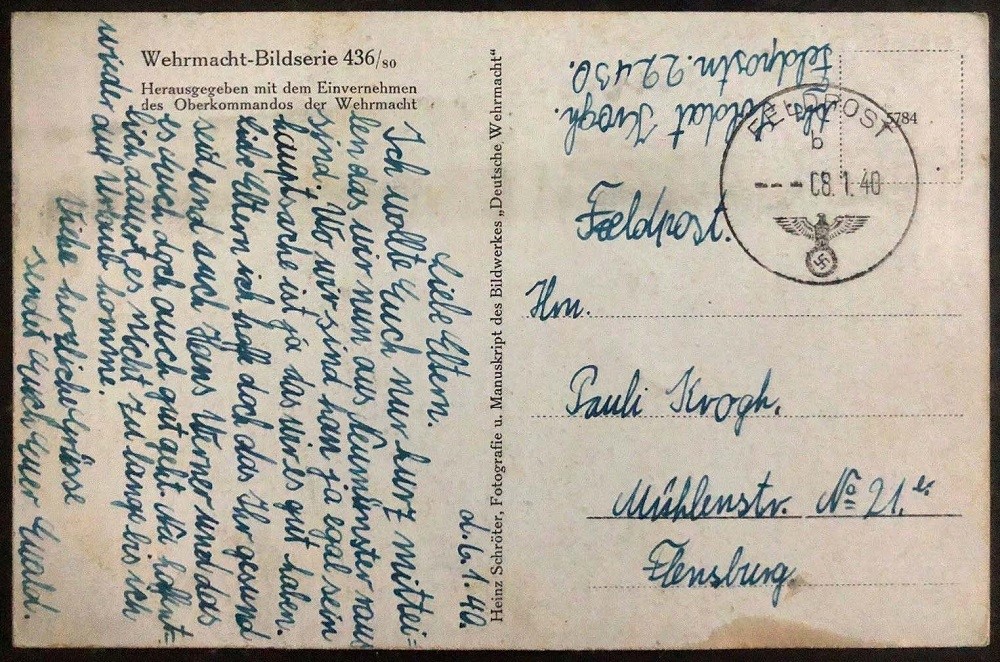 Wehrmacht-Bildserie 436/80
Herausgegeben mit dem Einvernehmen
des Oberkommandos der Wehrmacht
d. 6.1.40.
Liebe Eltern.
Ich wollte Euch nur kurz mittei=
len das wir nun aus Neumünster raus
sind. Wo wir sind kan ja egal sein
hauptsache ist ja das wir es gut haben.
Liebe Eltern ich hoffe doch das Ihr gesund
seid und auch Hans Werner und das
es Euch doch auch gut geht. Na hoffent=
lich dauert es nicht zu lange bis ich
wieder auf Urlaub komme.
Viele herzliche Grüsse
sendet Euch Euer Ewald.
Heinz Schröter, Fotografie u. Manuskript des Bildwerkes „Deutsche Wehrmacht"
Soldat Krogh.
Feldpostn. 22430.
FELDPOST
b
--- 08.1.40
5784
Feldpost.
Hrn.
Pauli Krogh.
Mühlenstr. No 21.er
Flensburg.